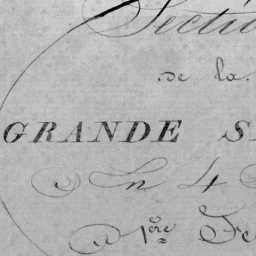 Secti
de la
GRANDE S
En 4
1ère Fe